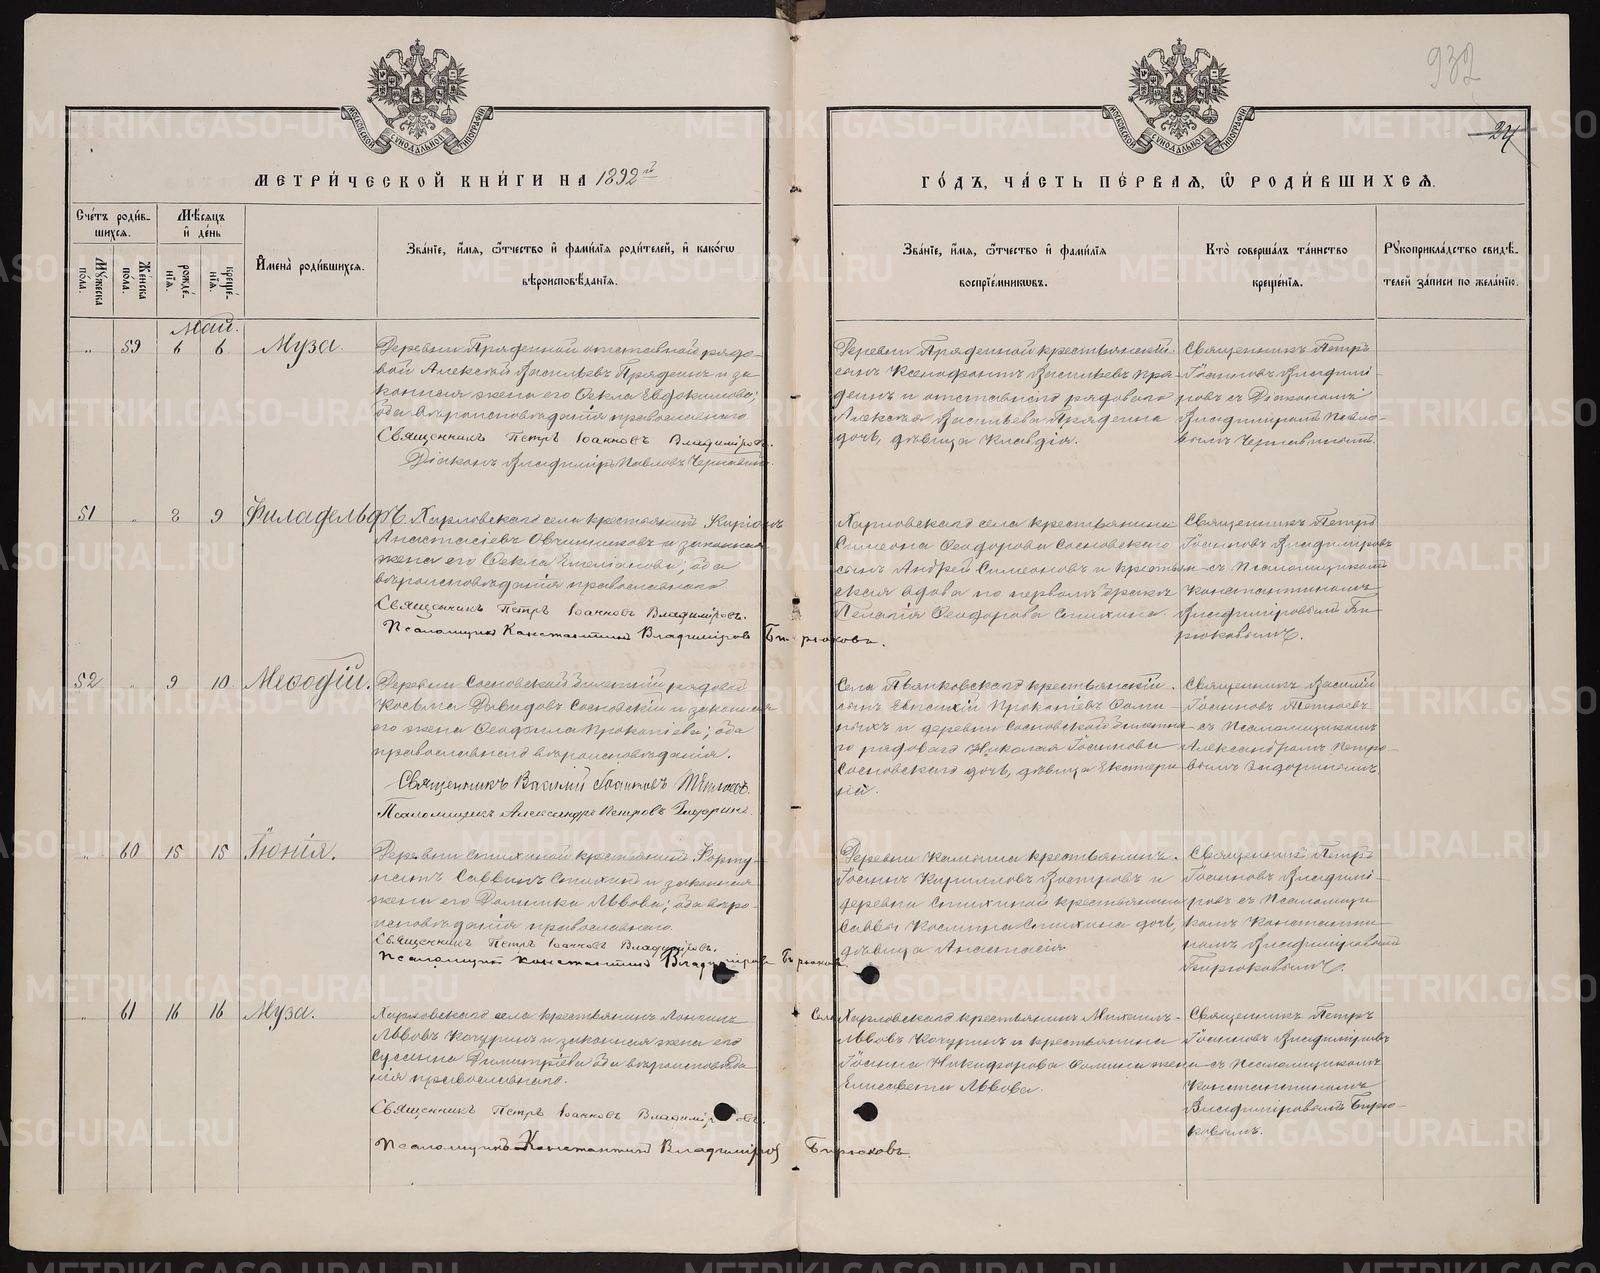 932
24
МЕТРИ́ЧЕСКОЙ КНИ́ГИ НА 1892й
ГО́ДЪ, ЧА́СТЬ ПЕ́РВАЯ, Ѡ РОДИ́ВШИХСЯ.
Сче́тъ роди́в-
шихся.
Мѣ́сяцъ
и҆ де́нь
Мꙋ́жеска
по́ла.
Же́нска
по́ла.
рожде́-
нїя.
креще́-
нїя.
И҆мена̀ роди́вшихся.
Зва́нїе, и҆́мя, ѻ҆́тчество и҆ фами́лїя роди́телей, и҆ како́гѡ
вѣроисповѣ́данїя.
Зва́нїе, и҆́мя, ѻ҆́тчество и҆ фами́лїя
воспрїе́мникѡвъ.
Кто̀ соверша́лъ та́инство
креще́нїя.
Рꙋкоприкла́дство свидѣ́-
телей за́писи по жела́нїю.
Май.
„ 59 6 6 Муза.
Деревни Пряденной отставной рядо-
вой Алексѣй Васильевъ Прядеинъ и за
конная жена его Ѳекла Евдокимова;
оба вѣроисповѣданія православнаго
Священникъ Петръ Іоанновъ Владиміровъ.
Діаконъ Владиміръ Павловъ
Деревни Пряденной крестьянскій
сынъ Ксенофонтъ Васильевъ Пря-
деинъ и отставнаго рядоваго
Алексѣя Васильева Прядеина
дочь, дѣвица Клавдія.
Священникъ Петръ
Іоанновъ Владимі-
ровъ съ Діакономъ
Владиміромъ Павло-
вымъ
51 „ 8 9 Филадельфъ.
Харловскаго села крестьянинъ
Анастасіевъ Овчинниковъ и законная
жена его Ѳекла; оба
вѣроисповѣданія православнаго
Священникъ Петръ Іоанновъ Владиміровъ.
Псаломщикъ Константинъ Владиміровъ Бирюковъ.
Харловскаго села крестьянина
Симеона Ѳеодорова Сосновскаго
сынъ Андрей Симеоновъ и крестьян-
ская вдова по первомъ бракѣ
Пелагія Ѳеодорова Спихина.
Священникъ Петръ
Іоанновъ Владиміровъ
съ Псаломщикомъ
Константиномъ
Владиміровымъ Би-
рюковымъ.
52 „ 9 10 Меѳодій.
Деревни Сосновской рядовой
Косьма Давидовъ Сосновскій и законная
его жена Ѳеофила Прокопіева; оба
православнаго вѣроисповѣданія.
Священникъ Василій Іоанновъ
Псаломщикъ Александръ Петровъ
Села крестьянскій
сынъ Прокопіевъ
и деревни Сосновской
го рядоваго Николая Іоаннова
Сосновскаго дочь, дѣвица Екатери-
на.
Священникъ Василій
Іоанновъ
съ Псаломщикомъ
Александромъ Петро-
вымъ
„ 60 15 15 Іюнія.
Деревни Спихиной крестьянинъ Форту-
натъ Саввинъ Спихинъ и законная
жена его Домника Львова; оба вѣро-
исповѣданія православнаго.
Священникъ Петръ Іоанновъ Владиміровъ.
Псаломщикъ Константинъ Владиміровъ Бирюковъ.
Деревни крестьянинъ
Іоаннъ Кирилловъ Востровъ и
деревни Спихиной крестьянина
Саввы Космина Спихина дочь,
дѣвица Анастасія
Священникъ Петръ
Іоанновъ Владимі-
ровъ съ Псаломщи-
комъ Константи-
номъ Владиміровымъ
Бирюковымъ.
„ 61 16 16 Муза.
Харловскаго села крестьянинъ Лонгинъ
Львовъ Кочуринъ и законная жена его
Сусанна Димитріева оба вѣроисповѣда
нія православнаго.
Священникъ Петръ Іоанновъ Владиміровъ.
Псаломщикъ Константинъ Владиміровъ Бирюковъ.
Села Харловскаго крестьянинъ Михаилъ
Львовъ Кочуринъ и крестьянина
Іоанна Никифорова жена
Елисавета Львова.
Священникъ Петръ
Іоанновъ Владиміровъ
съ Псаломщикомъ
Константиномъ
Владиміровымъ Бирю-
ковымъ.